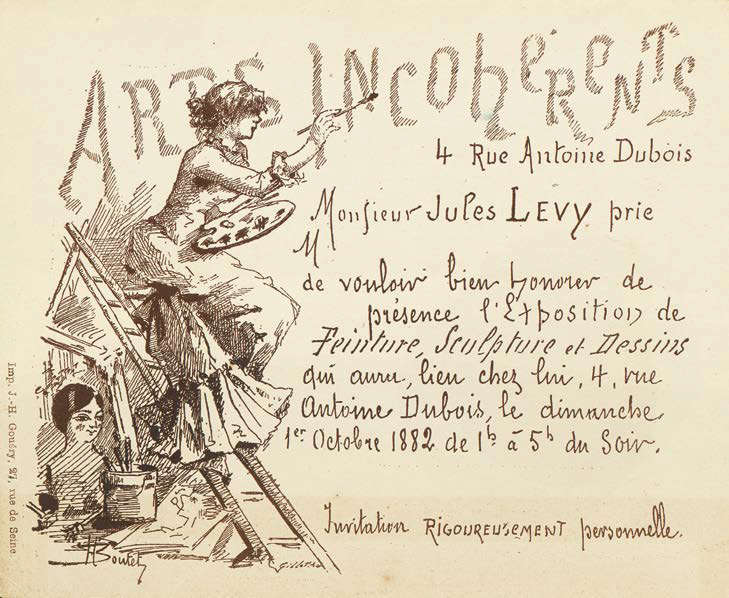 ARTS INCOHÉRENTS
4 Rue Antoine Dubois
Monsieur Jules LEVY prie
M
de vouloir bien honorer de
présence l'Exposition de
Peinture, Sculpture et Dessins
qui aura, lieu chez lui, 4, rue
Antoine Dubois, le dimanche
1er Octobre 1882 de 1h à 5h du Soir.
Invitation RIGOUREUSEMENT personnelle.
HBoutet
Imp. J.-H. Gonéry, 27, rue de Seine